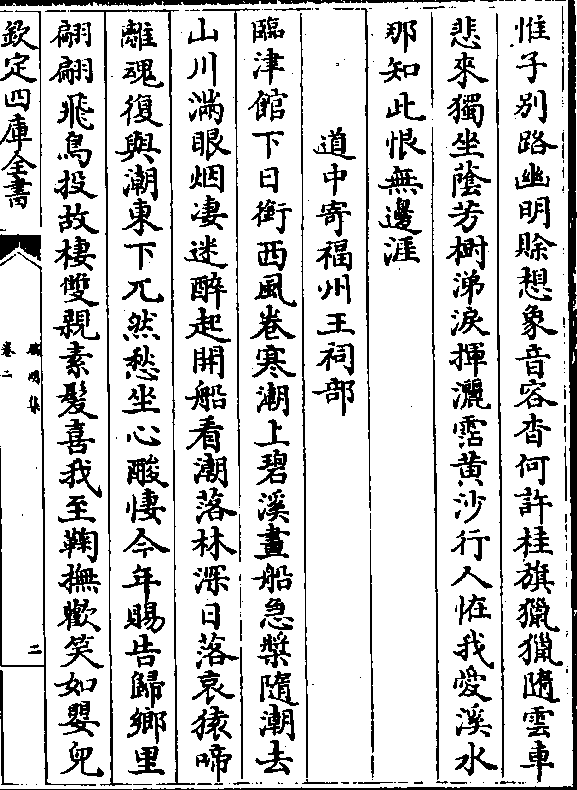 惟子别路幽明賖想象音容杳何許桂旗獵獵隨雲車
悲來獨坐蔭芳樹涕淚揮灑霑黄沙行人恠我愛溪水
那知此恨無邊涯
道中寄福州王祠部
臨津館下日銜西風卷寒潮上碧溪畫船急槳隨潮去
山川滿眼烟凄迷醉起開船看潮落林深日落哀猿啼
離魂復與潮東下兀然愁坐心酸悽今年賜告歸鄉里
翩翩飛鳥投故棲雙親素髮喜我至鞠撫歡笑如嬰兒
欽定四庫全書
集
卷二
二